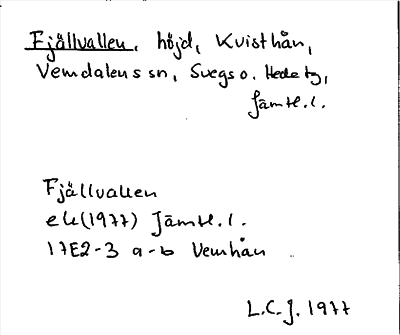 Fjällvallen, höjd, Kvisthån,
Vemdalens sn, Svegs o. Hede tg,
Jämtl. l.
Fjällvallen
ek (1977) Jämtl. l.
17E2-3 a-b Vemhån
L.C.J. 1977